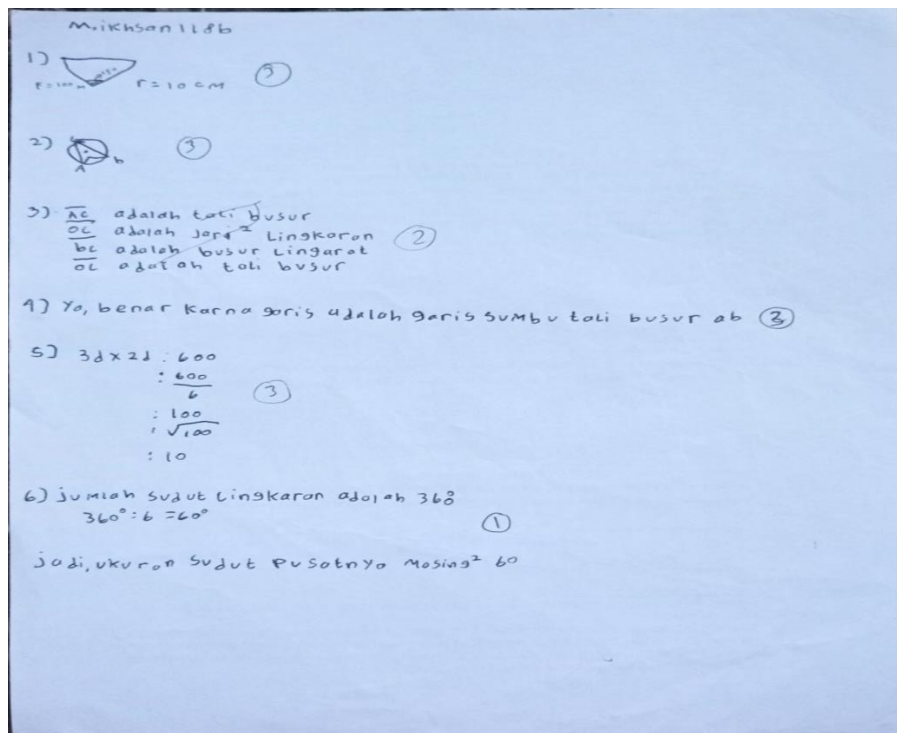 M.ikhsan 118b
1) r = 10 cm
2) A b
3) AC adalah tali busur
OC adalah jari² Lingkaran 2
bc adalah busur Lingarat
OC adalah tali busur
4) Ya, benar karna garis adalah garis sumbu tali busur ab
5) 3d x 2d : 600
: 600
6 3
: 100
: √100
: 10
6) jumlah sudut Lingkaran adalah 360
360° : 6 = 60° 1
jadi, ukuran sudut pusatnya masing² 60